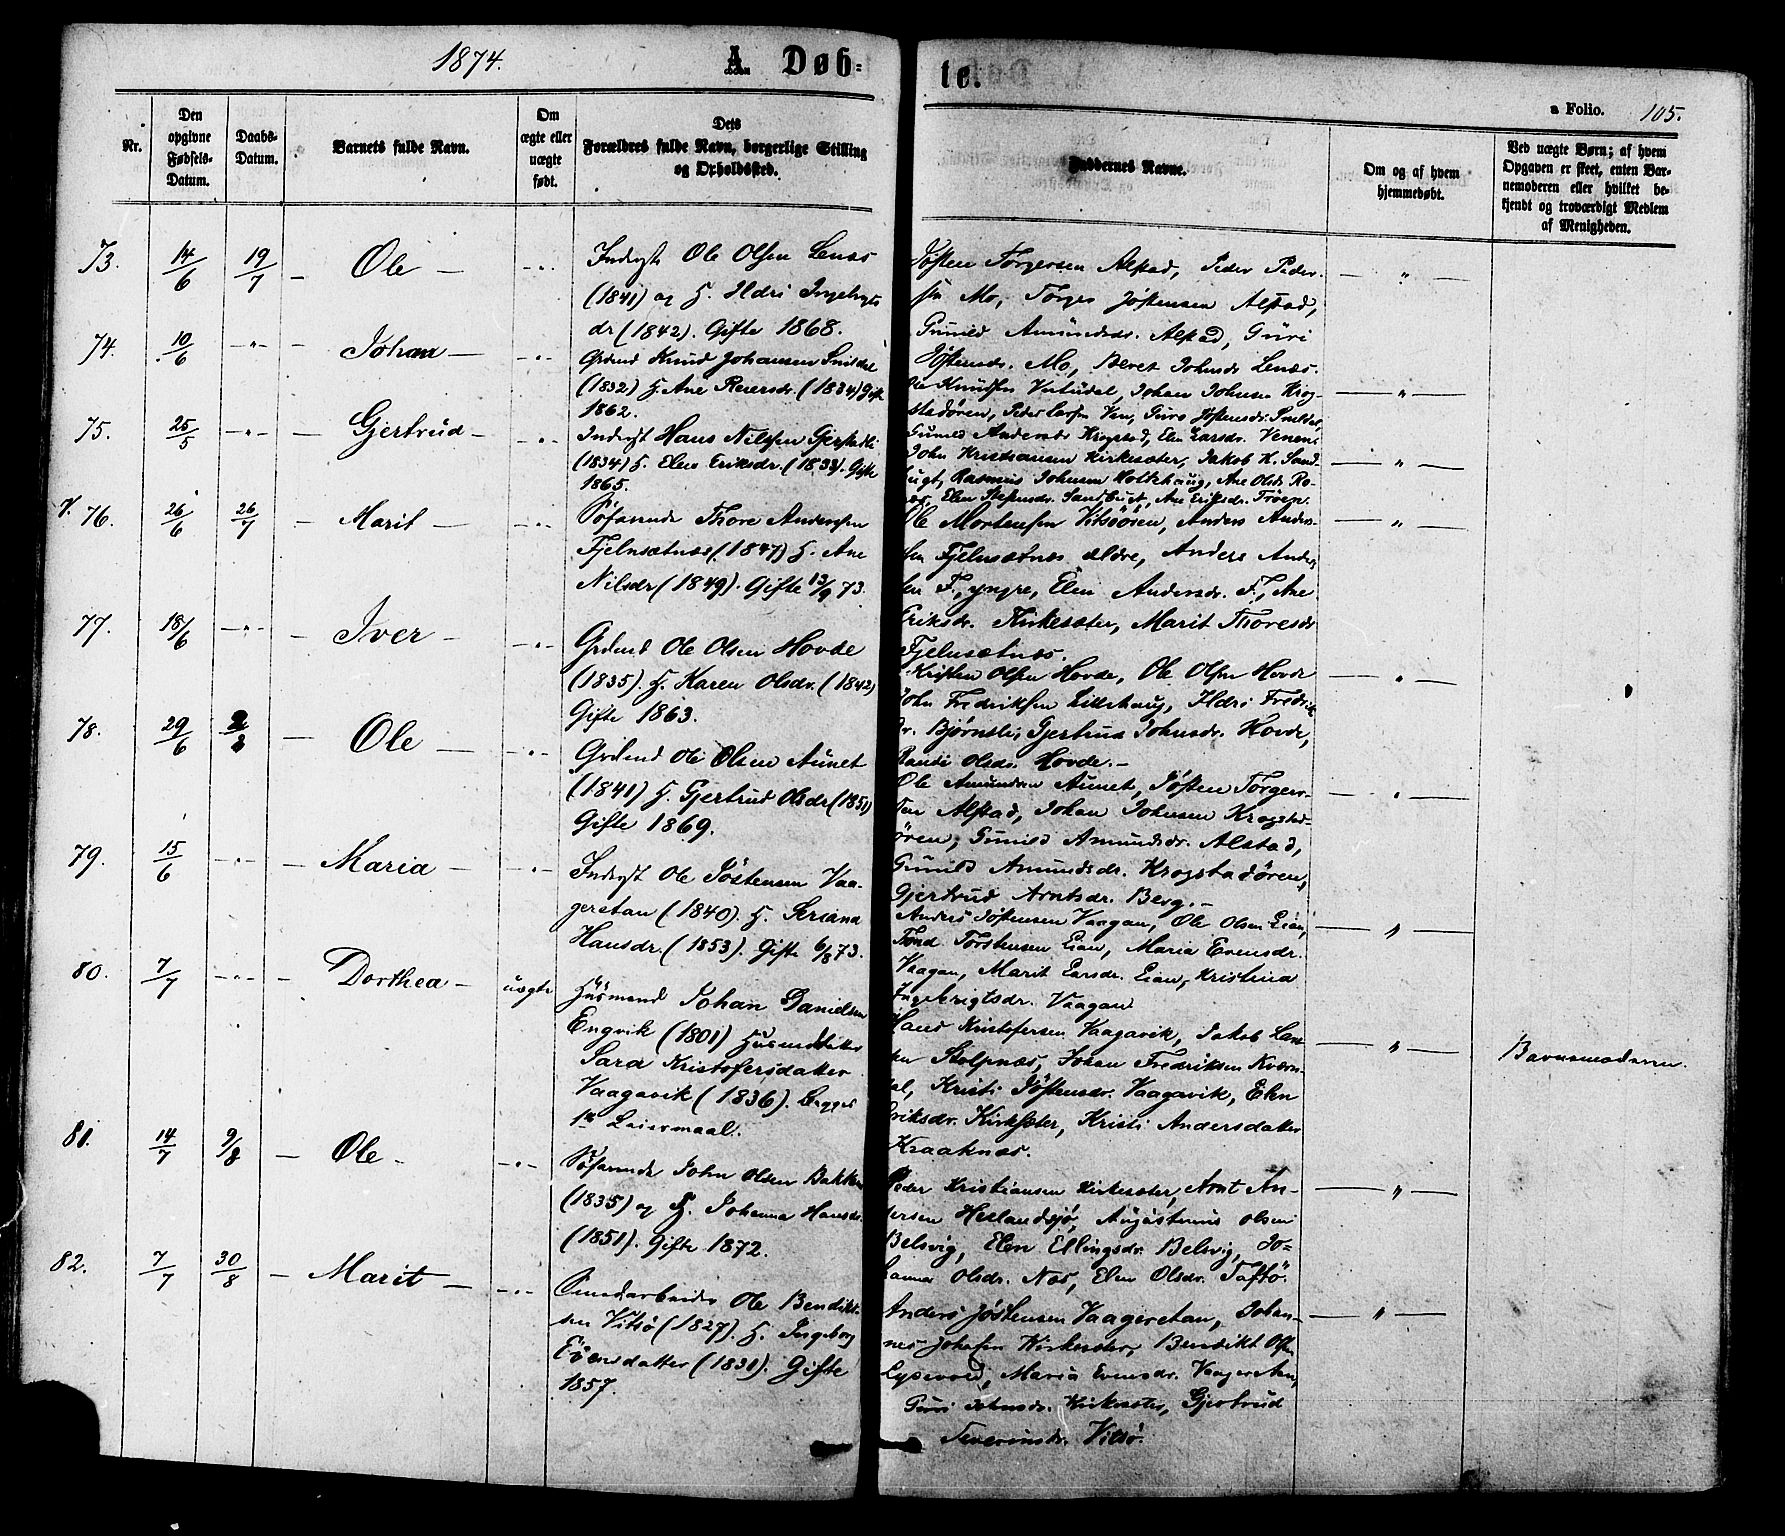 1874.
A Døb-
te.
a Folio. 105.
Nr.
Den opgivne Fødsels-Datum.
Daabs-Datum.
Barnets fulde Navn.
Om ægte eller uægte født.
Dets Forældres fulde Navn, borgerlige Stilling og Opholdssted.
Faddernes Navne.
Om og af hvem hjemmedøbt.
Ved uægte Børn; af hvem Opgaven er skeet, enten Barnemoderen eller hvilket bekjendt og troværdigt Medlem af Menigheden.
73. 14/6 19/7 — Ole — -"-
Inderst Ole Olsen Lenæs
(1841) og H. Ildri Ingebrigts
dr (1842). Gifte 1868.
Jøsten Torgersen Alstad, Peder Peder-
sen Mo, Torger Jøstensen Alstad,
Gunild Amundsdr. Alstad, Guri
Jøstensdr. Mo, Beret Johnsdr. Lenæs.
74. 10/6 -"- Johan — -"-
Grdmd Knud Johansen Snildal
(1832) H. Ane Reiersdr. (1834) Gift
1862.
Ole Knudsen Vutudal, Johan Johnsen Krog-
stadøren, Peder Larsen Ven, Guro Jøstensdr. Snildal,
Gunild Andersdr. Krogstad, Elen Larsdr. Venem
75. 25/5 -"- — Gjertrud — -"-
Inderst Hans Nilssen Gjerstadli
(1834) H. Elen Eriksdr. (1833). Gifte
1865.
John Kristiansen Kirkesæter, Jakob H. Sand-
bugt, Rasmus Johnsen Holtehaug, Ane Olsdr. Ro-
næs, Elen Stefensdr. Sandbugt, Ane Eriksdr. Trøen.
7. 76. 26/6 26/7 — Marit — -"-
Søfarende Thore Anderssen
Fjelnsætnæs (1847) H. Ane
Nilsdr (1849). Gifte 13/9 73.
Ole Mortensen Vitsøøren, Anders Anders-
sen Fjelnsætnæs ældre, Anders Anders
sen F., yngre, Elen Andersdr. F., Ane
Eriksdr. Kirkesæter, Marit Thoresdr
Fjelnsætnæs.
77. 18/6 -"- — Iver — -"-
Grdmd Ole Olsen Hovde
(1835). H. Karen Olsdr. (1842)
Gifte 1863.
Kristen Olsen Hovde, Ole Olsen Hovde
John Fredriksen Lillehaug, Ildri Fredriks
dr. Bjørnsli, Gjertrud Johnsdr. Hovde,
Randi Olsdr. Hovde. —
78. 29/6 2/8 — Ole — -"-
Grdmd Ole Olsen Aunet
(1841) H. Gjertrud Olsdr (1851)
Gifte 1869.
Ole Amundsen Aunet, Jøsten Torger-
sen Alstad, Johan Johnsen Krogstad-
øren, Gunild Amundsdr. Alstad,
Gunild Amundsdr. Krogstadøren,
Gjertrud Arntsdr. Berg. —
79. 15/6 -"- — Maria — -"-
Inderst Ole Jøstensen Vaa-
geretan (1840). H. Seriana
Hansdr. (1853). Gifte 6/8 73.
Anders Jøstensen Vaagan, Ole Olsen Eian,
Trond Torstensen Eian, Maria Evensdr.
Vaagan, Marit Larsdr. Eian, Kristina
Ingebrigtsdr. Vaagan
80. 7/7 -"- — Dorthea — uægte
Husmand Johan Danielsen
Engvik (1801) Husmdsdatter
Sara Kristofersdatter
Vaagavik (1836). Begges
1ste Leiermaal.
Hans Kristofersen Vaagavik, Jakob Lar
sen Stolpnæs, Johan Fredriksen Kværn-
dal, Kristi Jøstensdr. Vaagavik, Elen
Eriksdr. Kirksæter, Kristi Andersdatter
Kraaknæs.
Barnemoderen.
81. 14/7 9/8 — Ole — -"-
Søfarende John Olsen Bakken
(1835) og H. Johanna Hansdr.
(1851). Gifte 1872.
Peder Kristiansen Kirkesæter, Arnt An-
dersen Heslandsjø, Augustinus Olsen
Belsvig, Elen Ellingsdr. Belsvig, Jo-
hanna Olsdr. Næs, Elen Olsdr. Taftø.
82. 7/7 30/8 — Marit — -"-
Smedarbeider Ole Bendikt-
sen Vitsø (1827). H. Ingeborg
Evensdatter (1831). Gifte
1857.
Anders Jøstensen Vaageretan, Johan-
nes Johnsen Kirkesæter, Bendikt Olsen
Lysevold, Maria Evensdr. Vaageretan,
Guri Johnsdr. Kirkesæter, Gjertrud
Severinsdr. Vitsø.